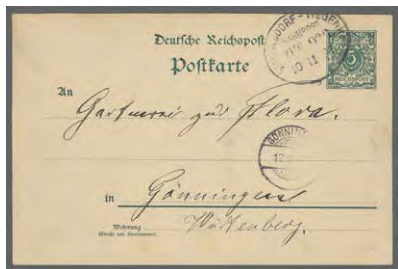 Deutsche Reichspost
Postkarte
5
REICHSPOST
An
Gärtnerei zur Flora.
in Gönningen
Württenberg.
Wohnung
(Straße und Hausnummer)